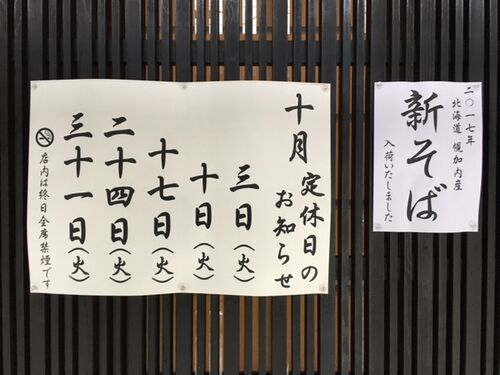 二〇一七年
北海道 幌加内産
新そば
入荷いたしました
十月 定休日の
お知らせ
三日（火）
十日（火）
十七日（火）
二十四日（火）
三十一日（火）
店内は終日全席禁煙です